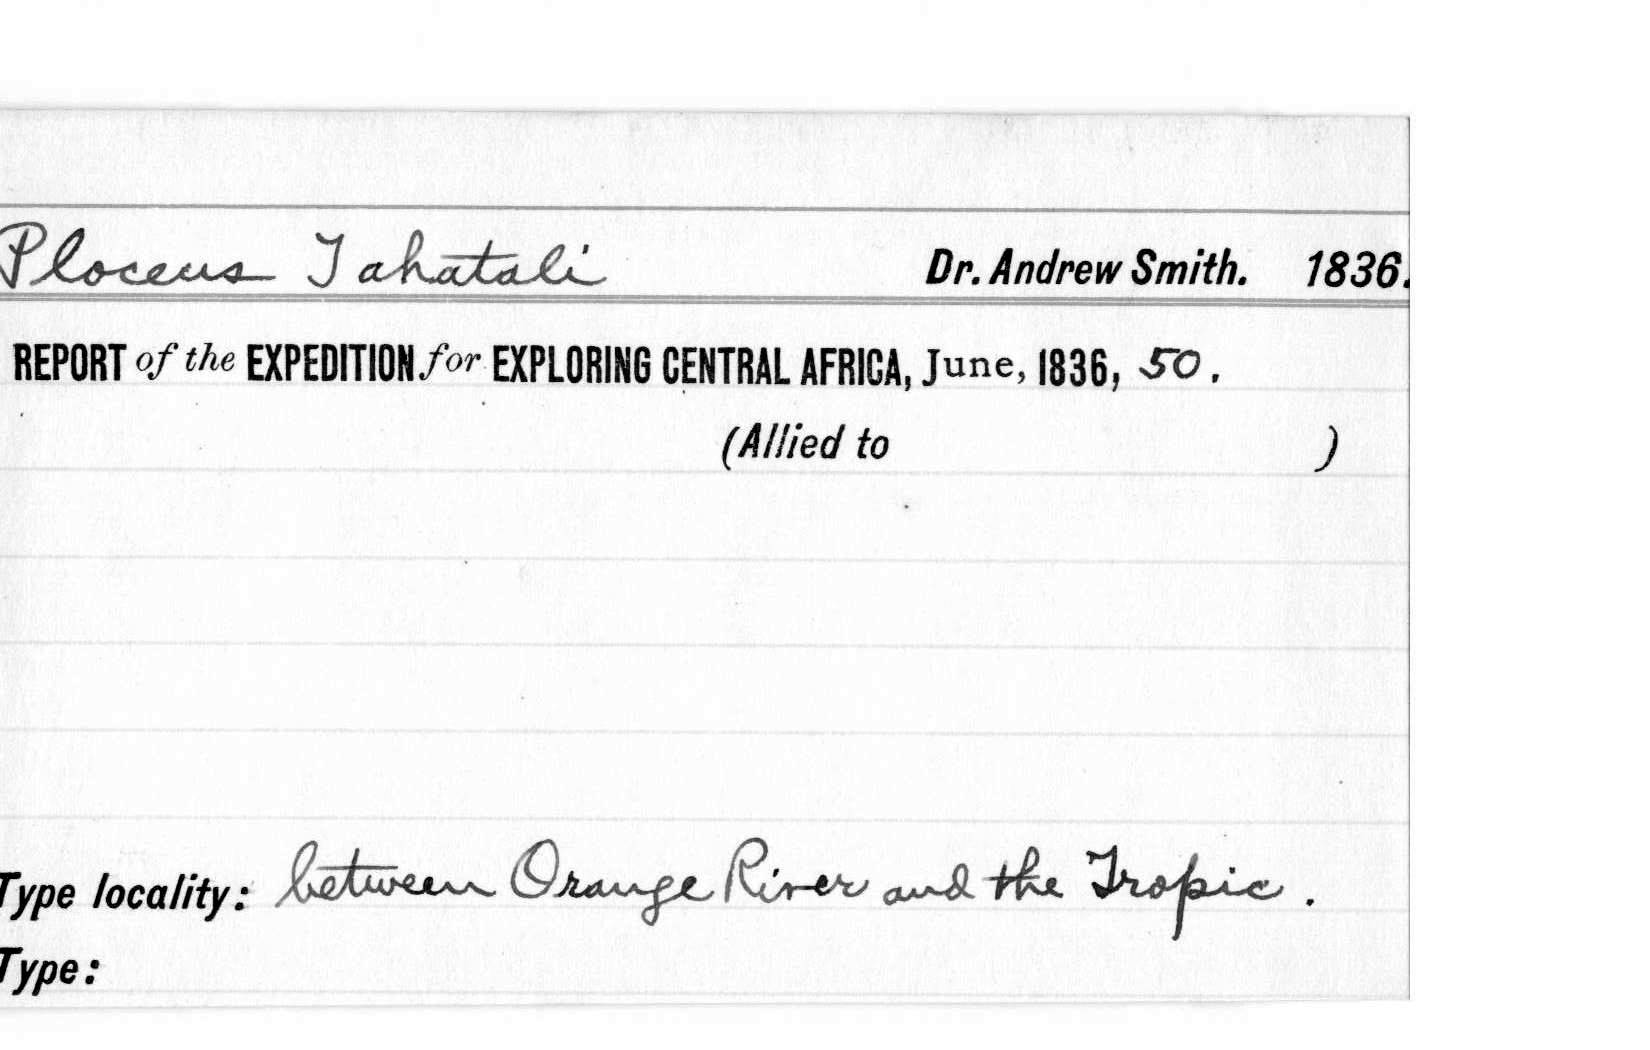 Ploceus Tahatali Dr. Andrew Smith. 1836.
REPORT of the EXPEDITION for EXPLORING CENTRAL AFRICA, June, 1836, 50.
(Allied to )
Type locality: between Orange River and the Tropic.
Type: